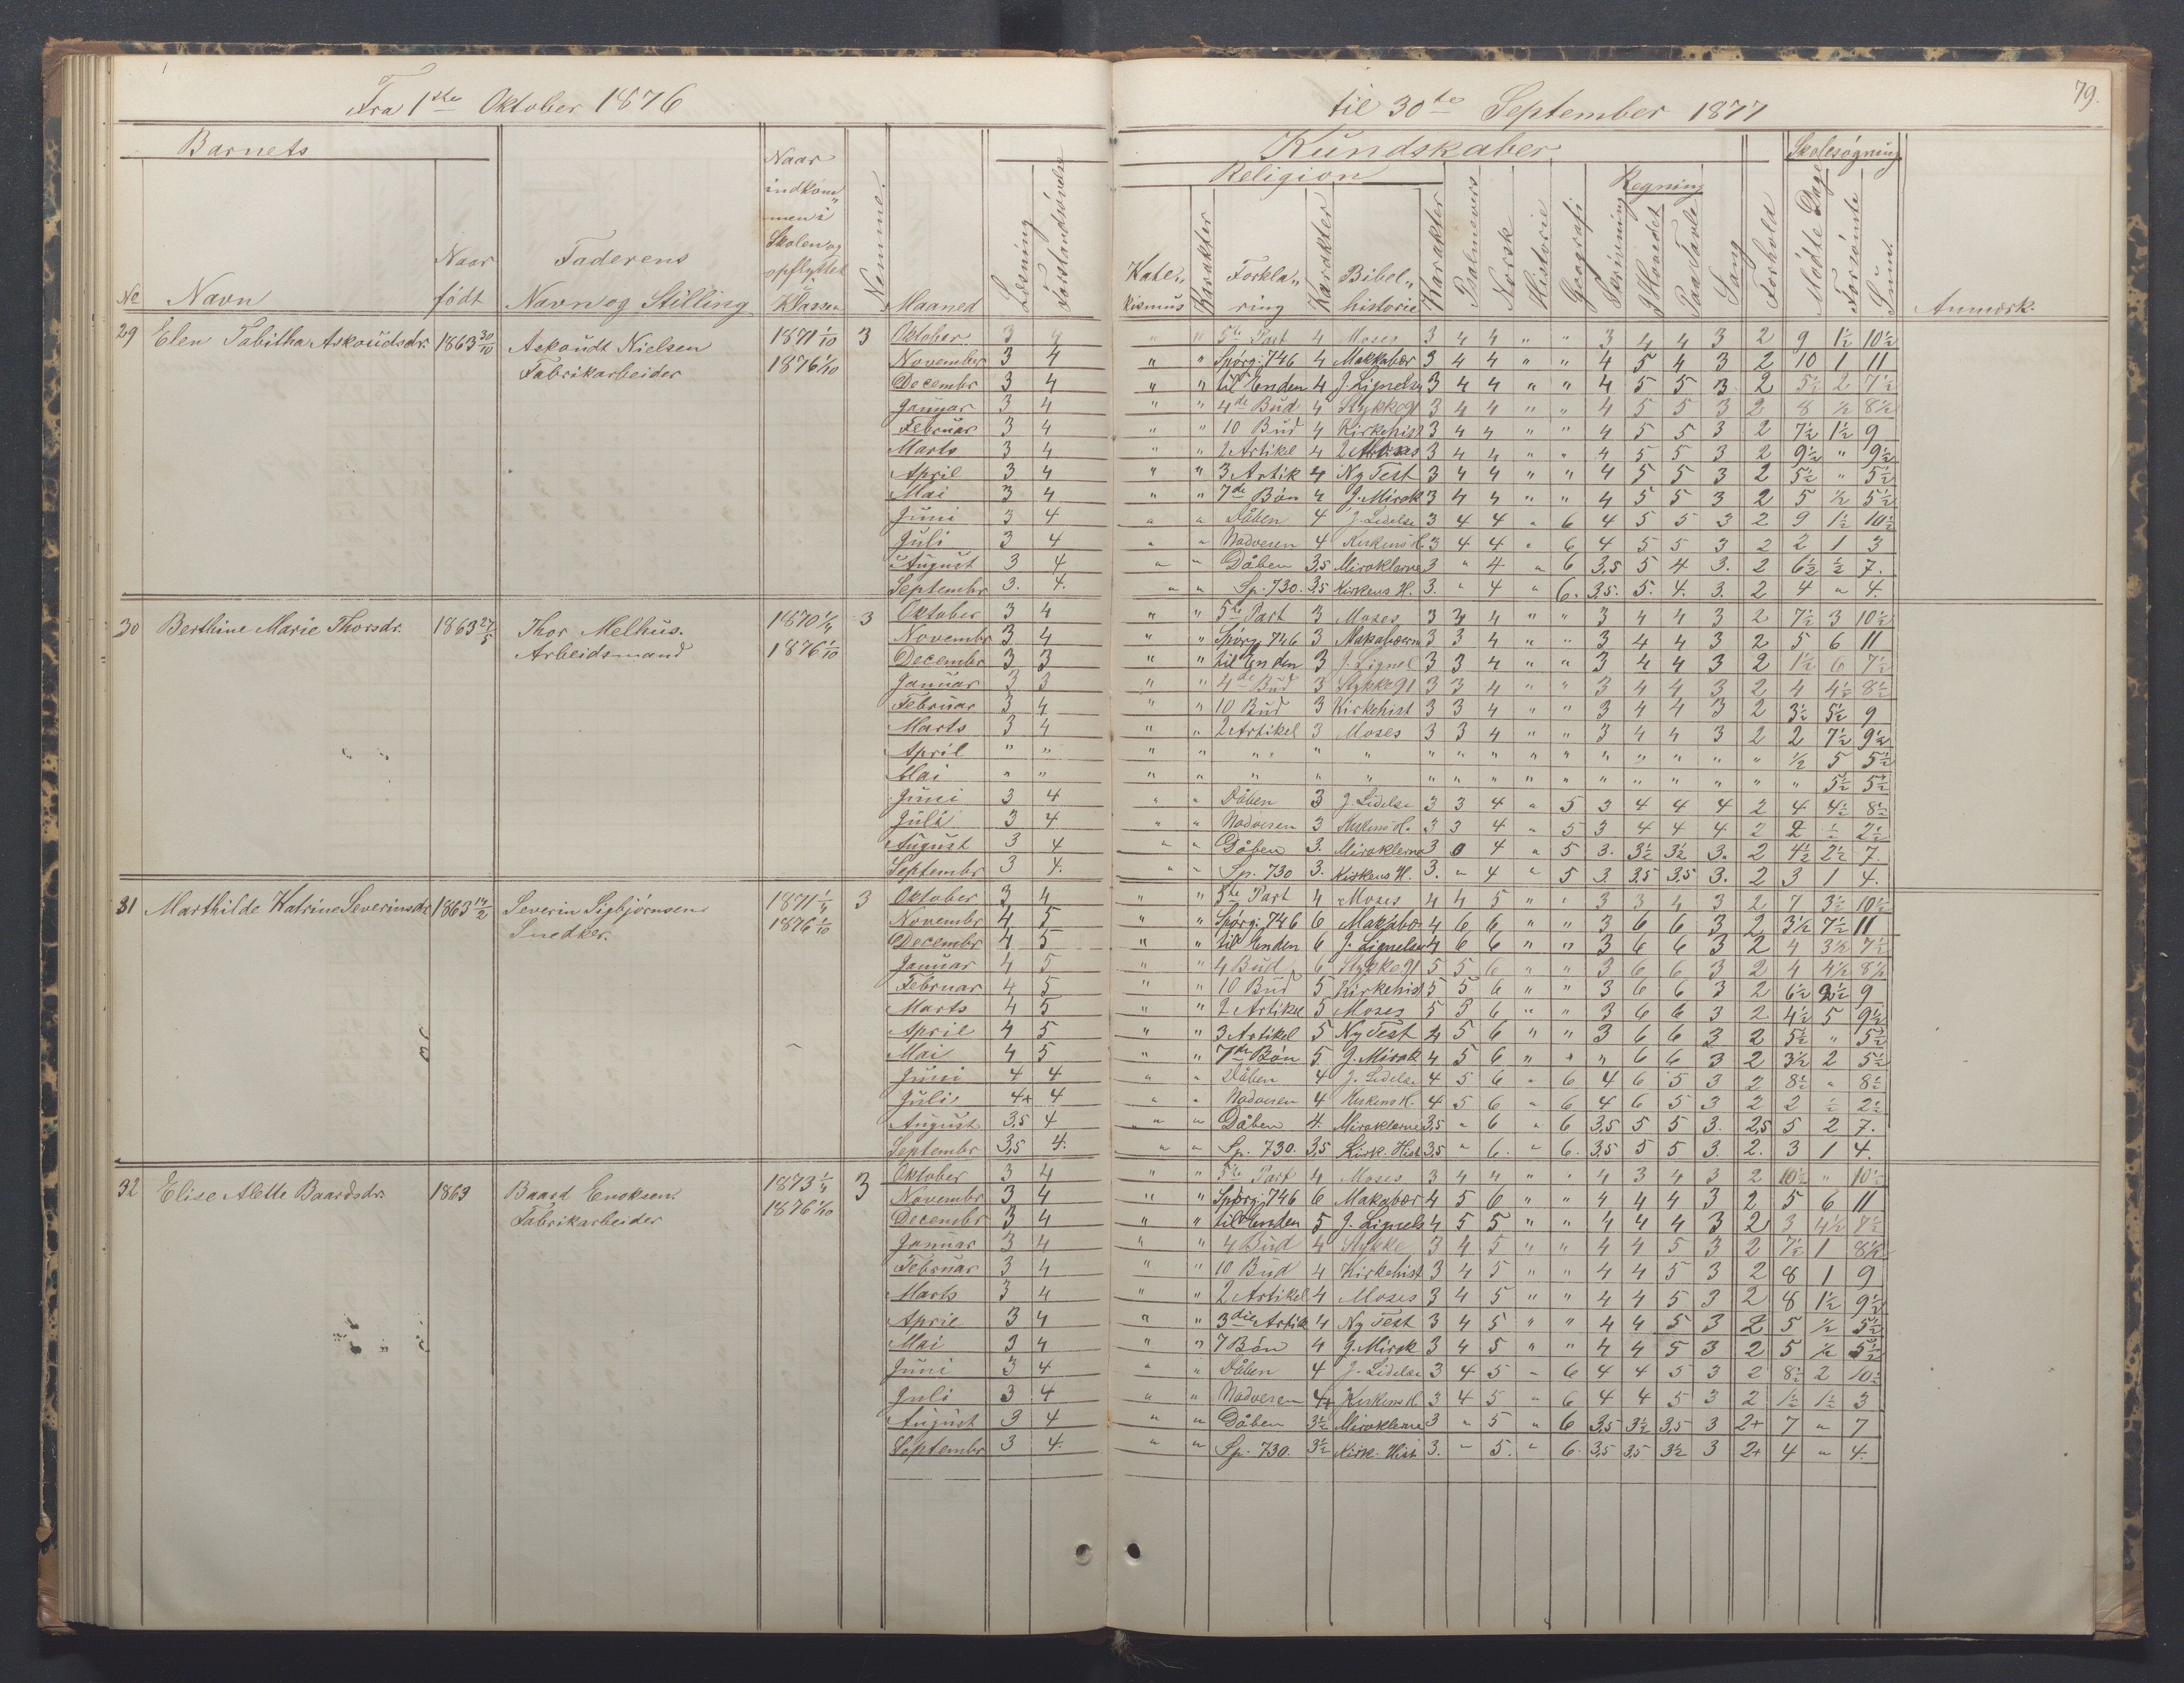 Fra 1ste Oktober 1876
til 30te September 1877
79.
Barnets
Kundskaber
Skolesøgning
Religion
Regning
No Navn
Naar født
Faderens Navn og Stilling
Naar indkom„ men i Skolen og opflyttet Klassen
Nemme.
Maaned
Læsning
Forstandsøvelse
Kate„ kismus
Karakter
Forkla„ ring
Karakter
Bibel„ historie
Karakter
Psalmevers
Norsk
Historie
Geografi
Skrivning
I Hovedet
Paa Tavle
Sang
Forhold
Mødte Dage
Forsømte
Sum
Anmærk.
29 Elen Tabitha Askoudsdr. 1863 30/10 Askoudt Nielsen Fabrikarbeider 1871 1/10 1876 1/10 3
Oktober 3 4 " " 5te Part 4 Moses 3 4 4 " " 3 4 4 3 2 9 1½ 10½
November 3 4 " " Spørg. 746 4 Makkabær 3 4 4 " " 4 5 4 3 2 10 1 11
Decembr 3 4 " " til Enden 4 J. Lignelse 3 4 4 " " 4 5 5 3 2 5½ 2 7½
Januar 3 4 " " 4de Bud 4 Stykke 91 3 4 4 " " 4 5 5 3 2 8 ½ 8½
Februar 3 4 " " 10 Bud 4 Kirkehist 3 4 4 " " 4 5 5 3 2 7½ 1½ 9
Marts 3 4 " " 2 Artikel 4 Moses 3 4 4 " " 4 5 5 3 2 9½ " 9½
April 3 4 " " 3 Artik 4 Ny Test 3 4 4 " " 4 5 5 3 2 5½ " 5½
Mai 3 4 " " 7de Bøn 4 J. Mirak 3 4 4 " " 4 5 5 3 2 5 ½ 5½
Juni 3 4 " " Dåben 4 J. Lidelse 3 4 4 " 6 4 5 5 3 2 9 1½ 10½
Juli 3 4 " " Nadveren 4 Kirkens H. 3 4 4 " 6 4 5 5 3 2 2 1 3
August 3 4 " " Dåben 3,5 Miraklerne 3 " 4 " 6 3,5 5 4 3. 2 6½ ½ 7.
Septembr 3. 4. " " Sp. 730. 3,5 Kirkens H. 3. " 4 " 6. 3,5. 5. 4. 3. 2 4 " 4.
30 Berthine Marie Thorsdr. 1863 27/5 Thor Melhus. Arbeidsmand 1870 1/4 1876 1/10 3
Oktober 3 4 " " 5te Part 3 Moses 3 3 4 " " 3 4 4 3 2 7½ 3 10½
Novembr 3 4 " " Spørg 746 3 Makabærn 3 3 4 " " 3 4 4 3 2 5 6 11
Decembr 3 3 " " til Enden 3 J. Lignel 3 3 4 " " 3 4 4 3 2 1½ 6 7½
Januar 3 3 " " 4de Bud 3 Stykke 91 3 3 4 " " 3 4 4 3 2 4 4½ 8½
Februar 3 4 " " 10 Bud 3 Kirkehist 3 3 4 " " 3 4 4 3 2 3½ 5½ 9
Marts 3 4 " " 2 Artikel 3 Moses 3 3 4 " " 3 4 4 3 2 2 7½ 9½
April " " " " " " " " " " " " " " " " " ½ 5 5½
Mai " " " " " " " " " " " " " " " " " " 5½ 5½
Juni 3 4 " " Dåben 3 J. Lidelse 3 3 4 " 5 3 4 4 4 2 4 4½ 8½
Juli 3 4 " " Nadveren 3 Kirkens H. 3 3 4 " 5 3 4 4 4 2 2 ½ 2½
August 3 4 " " Dåben 3. Miraklerne 3 0 4 " 5 3. 3½ 3½ 3. 2 4½ 2½ 7.
Septembr 3 4. " " Sp. 730 3. Kirkens H. 3. " 4 " 5 3. 3,5 3,5 3. 2 3 1 4.
31 Marthilde Katrine Severinsdr. 1863 14/2 Severin Sigbjørnsen Snedker. 1871 1/4 1876 1/10 3
Oktober 3 4 " " 5te Part 4 Moses 4 4 5 " " 3 3 4 3 2 7 3½ 10½
Novembr 4 5 " " Spørg. 746 6 Makabær 4 6 6 " " 3 6 6 3 2 3½ 7½ 11
Decembr 4 5 " " til Enden 6 J. Lignelser 4 6 6 " " 3 6 6 3 2 4 3½ 7½
Januar 4 5 " " 4 Bud 6 Stykke 91 5 5 6 " " 3 6 6 3 2 4 4½ 8½
Februar 4 5 " " 10 Bud 5 Kirkehist 5 5 6 " " 3 6 6 3 2 6½ 2½ 9
Marts 4 5 " " 2 Artikel 5 Moses 5 5 6 " " 3 6 6 3 2 4½ 5 9½
April 4 5 " " 3 Artikel 5 Ny Test 4 5 6 " " 3 6 6 3 2 5½ " 5½
Mai 4 5 " " 7de Bøn 5 J. Mirak 4 5 6 " " " 6 6 3 2 3½ 2 5½
Juni 4 4 " " Dåben 4 J. Lidelse 4 5 6 " 6 4 6 5 3 2 8½ " 8½
Juli 4+ 4 " " Nadveren 4 Kirkens H. 4 5 6 " 6 4 6 5 3 2 2 ½ 2½
August 3,5 4 " " Dåben 4. Miraklerne 3,5 " 6 " 6 3,5 5 5 3. 2,5 5 2 7.
Septembr 3,5 4. " " Sp. 730. 3,5 Kirk. Hist 3,5 " 6. " 6. 3,5 5 5 3. 2. 3 1 4.
32 Elise Alette Baardsdr. 1863 Baard Enoksen. Fabrikarbeider 1873 1/4 1876 1/10 3
Oktober 3 4 " " 5te Part 4 Moses 3 4 4 " " 4 3 4 3 2 10½ " 10½
Novembr 3 4 " " Spørg. 746 6 Makabær 4 5 6 " " 4 4 4 3 2 5 6 11
Decembr 3 4 " " til Enden 5 J. Lignels 4 5 5 " " 4 4 4 3 2 3 4½ 7½
Januar 3 4 " " 4 Bud 4 Stykke 3 4 5 " " 4 4 5 3 2 7½ 1 8½
Februar 3 4 " " 10 Bud 4 Kirkehist 3 4 5 " " 4 4 5 3 2 8 1 9
Marts 3 4 " " 2 Artikel 4 Moses 3 4 5 " " 4 4 5 3 2 8 1½ 9½
April 3 4 " " 3die Artik 4 Ny Test 3 4 5 " " 4 4 5 3 2 5 ½ 5½
Mai 3 4 " " 7 Bøn 4 J. Mirak 3 4 5 " " 4 4 5 3 2 5 ½ 5½
Juni 3 4 " " Dåben 4 J. Lidelse 3 4 5 " 6 4 4 5 3 2 8½ 2 10½
Juli 3 4 " " Nadveren 4+ Kirkens H. 3 4 5 " 6 4 4 5 3 2 1½ 1½ 3
August 3 4 " " Dåben 3½ Miraklerne 3 " 5 " 6 3,5 3½ 3,5 3 2+ 7 " 7
Septembr 3 4. " " Sp. 730. 3½ Kirk. Hist 3. " 5. " 6. 3,5 3,5 3½ 3 2+ 4 " 4.